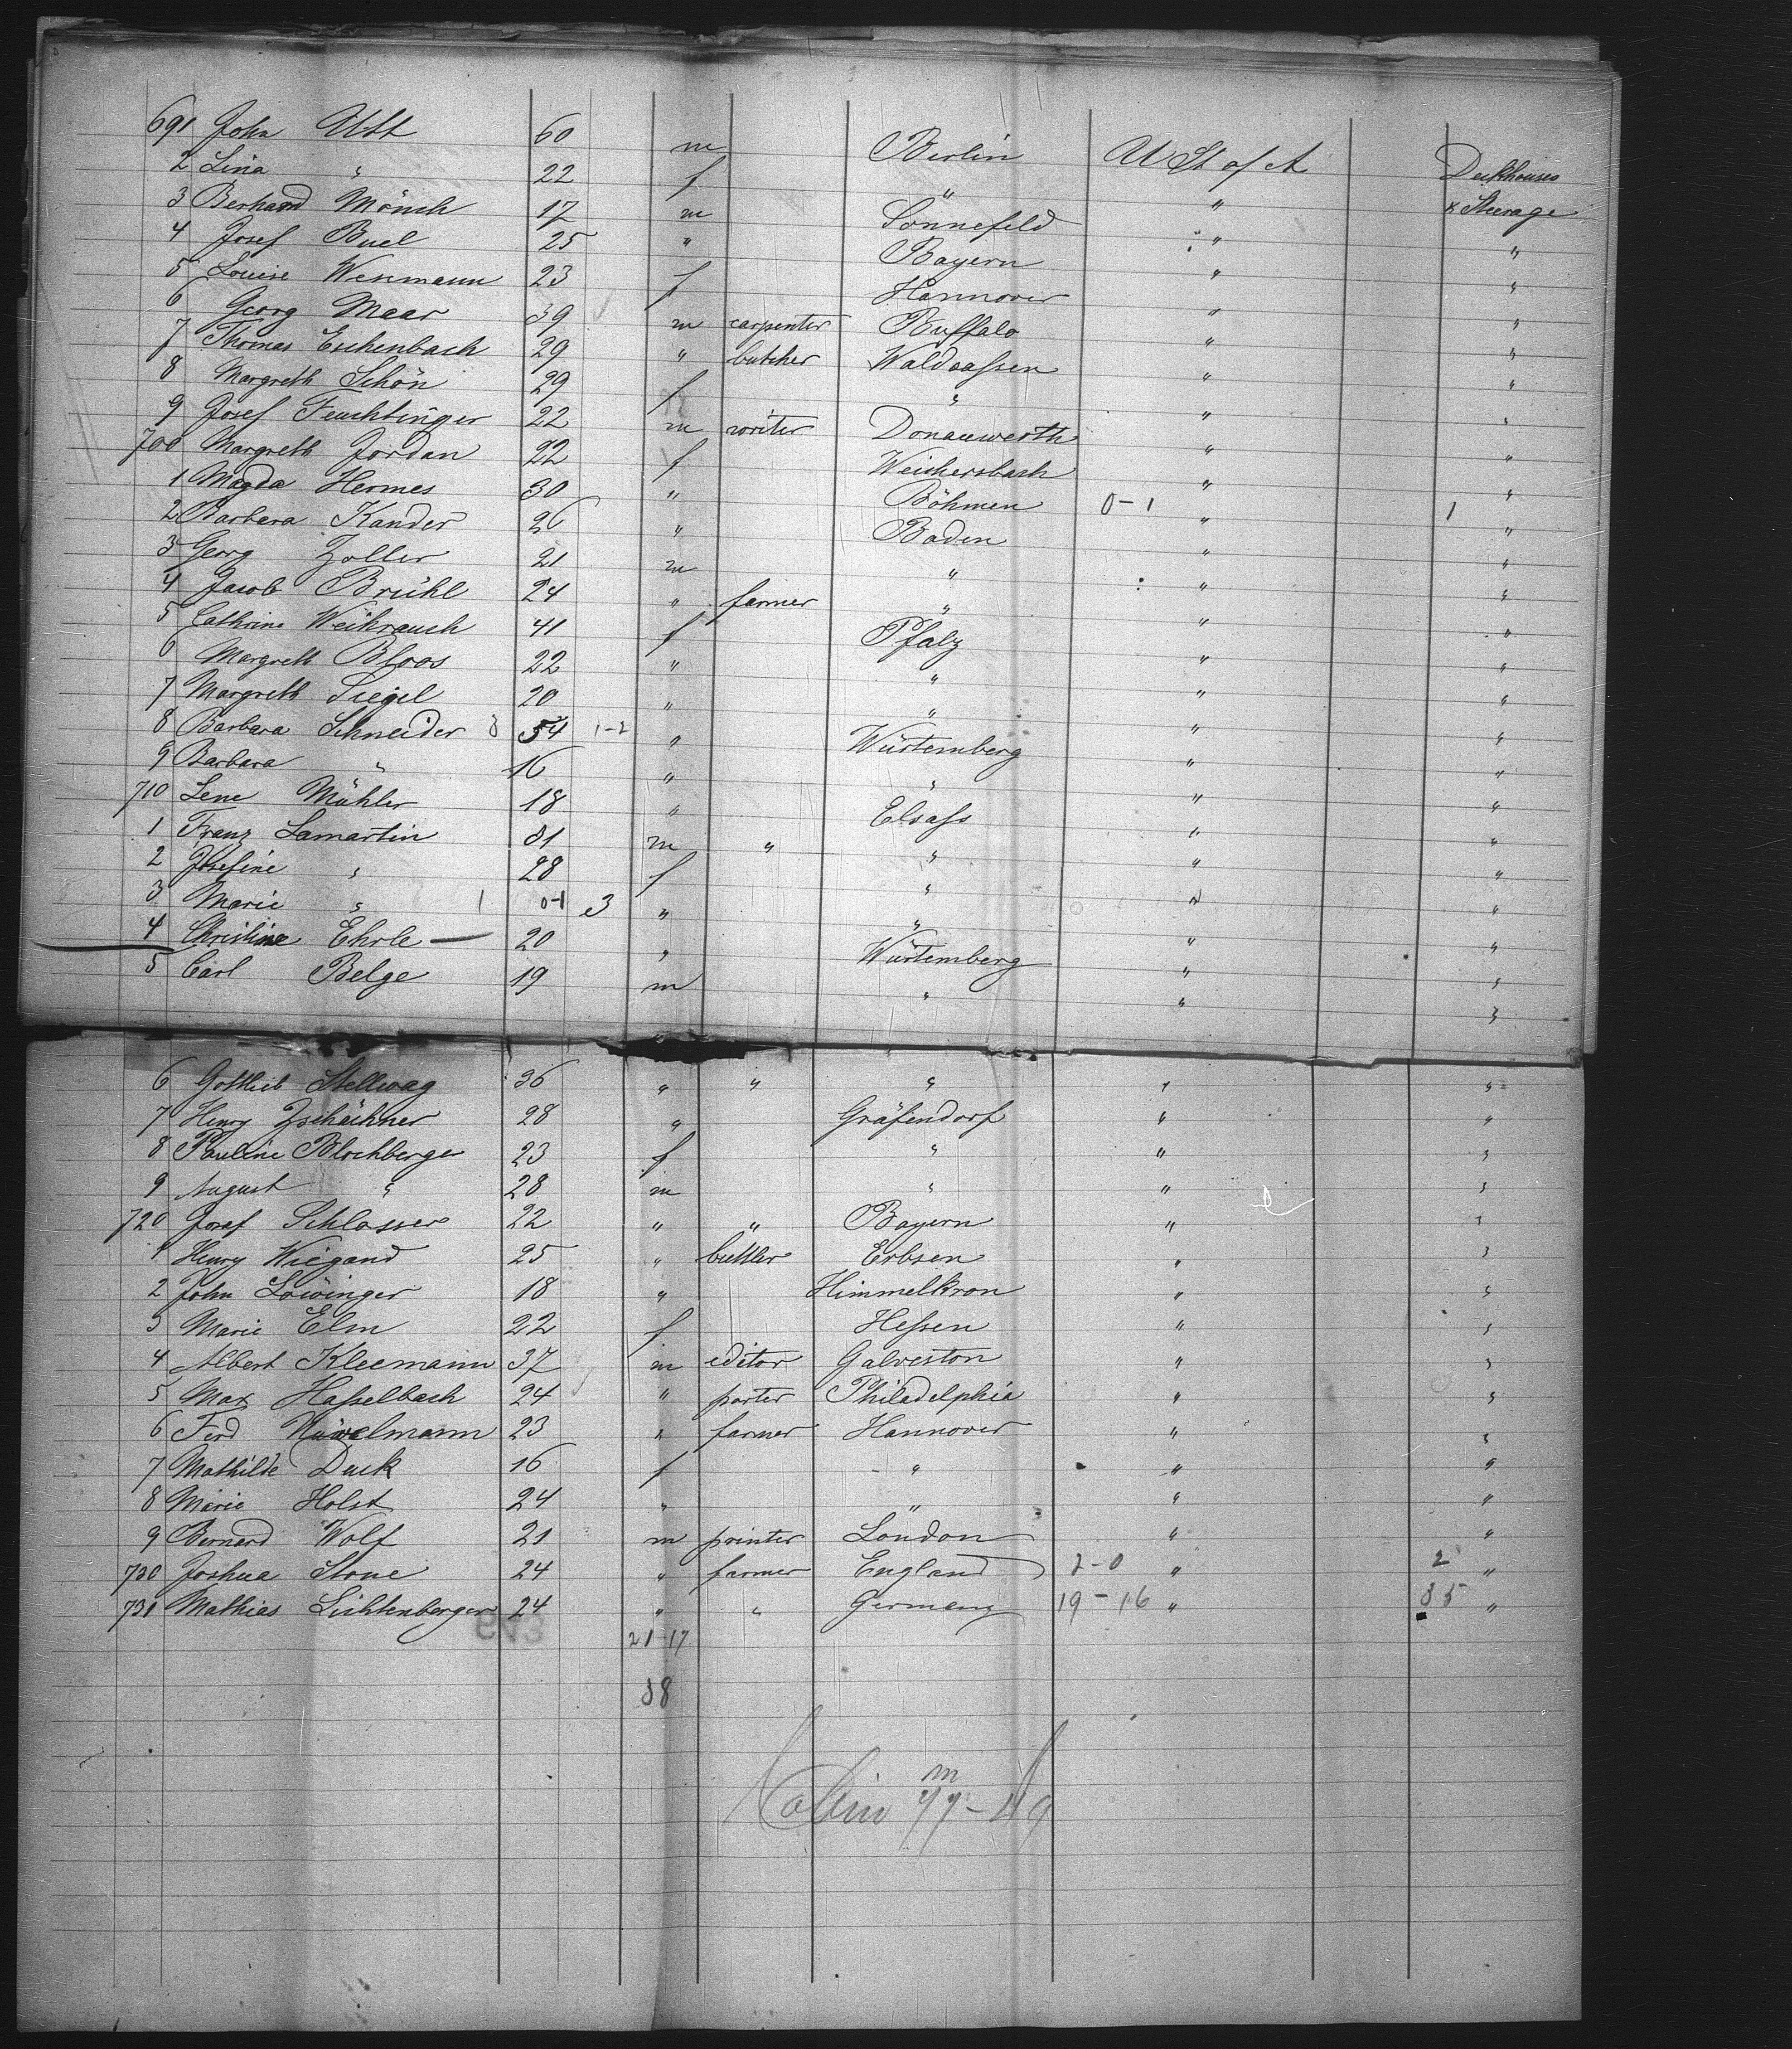 691 John Utt 60 m Berlin U St of A Deckhouses
2 Lina " 22 f " " & Steerage
3 Berhard Mönch 17 m Sonnefeld " "
4 Josef Buel 25 " Bayern " "
5 Louise Wesmann 23 f Hannover " "
6 Georg Maar 39 m carpenter Buffalo " "
7 Thomas Eschenbach 29 " butcher Waldsassen " "
8 Margreth Schön 29 f " " "
9 Josef Feuchtinger 22 m writer Donauwerth " "
700 Margreth Jordan 22 f Weichersbach " "
1 Magda Hermes 30 " Böhmen 0-1 " 1 "
2 Barbara Kander 26 " Baden " "
3 Georg Zoller 21 m " " "
4 Jacob Brühl 24 " farmer " " "
5 Cathrine Weihrauch 41 f Pfalz " "
6 Margreth Bloos 22 " " " "
7 Margreth Siegel 20 " " " "
8 Barbara Schneider 3 54 1-2 " Würtemberg " "
9 Barbara " 16 " " " "
710 Lene Mähler 18 " Elsass " "
1 Franz Lamartin 31 m " " " "
2 Josefine " 28 f " " "
3 Marie " 1 0-1 3 " " " "
4 Christine Ehrle 20 " Würtemberg " "
5 Carl Belge 19 m " " "
6 Gottlieb Stellwag 36 " " " " "
7 Henry Zschächner 28 " Gräfendorf " "
8 Pauline Blochberger 23 f " " "
9 August " 28 m " " "
720 Josef Schlosser 22 " " Bayern " "
1 Henry Wiegand 25 " buttler Erbsen " "
2 John Löwinger 18 " Himmelkron " "
3 Marie Elm 22 f Hessen " "
4 Albert Kleemann 37 m editor Galveston " "
5 Max Hasselbach 24 " porter Philadelphia " "
6 Ferd 23 " farmer Hannover " "
7 Mathilde Duck 16 f " " "
8 Marie Holst 24 " " " "
9 Bernard Wolf 21 m printer London " "
730 Joshua Stone 24 " farmer England 2-0 " 2 "
731 Mathias Lichtenberger 24 " " Germany 19-16 " 35 "
21-17
38